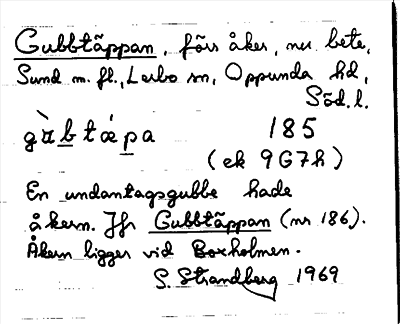 Gubbtäppan, förs åker, nu bete,
Sund m. fl., Lerbo sn, Oppunda hd,
Söd. l.
185
(ek 9G7h)
En undantagsgubbe hade
åkern. Jfr Gubbtäppan (nr 186).
Åkern ligger vid Boxholmen.
S. Strandberg 1969